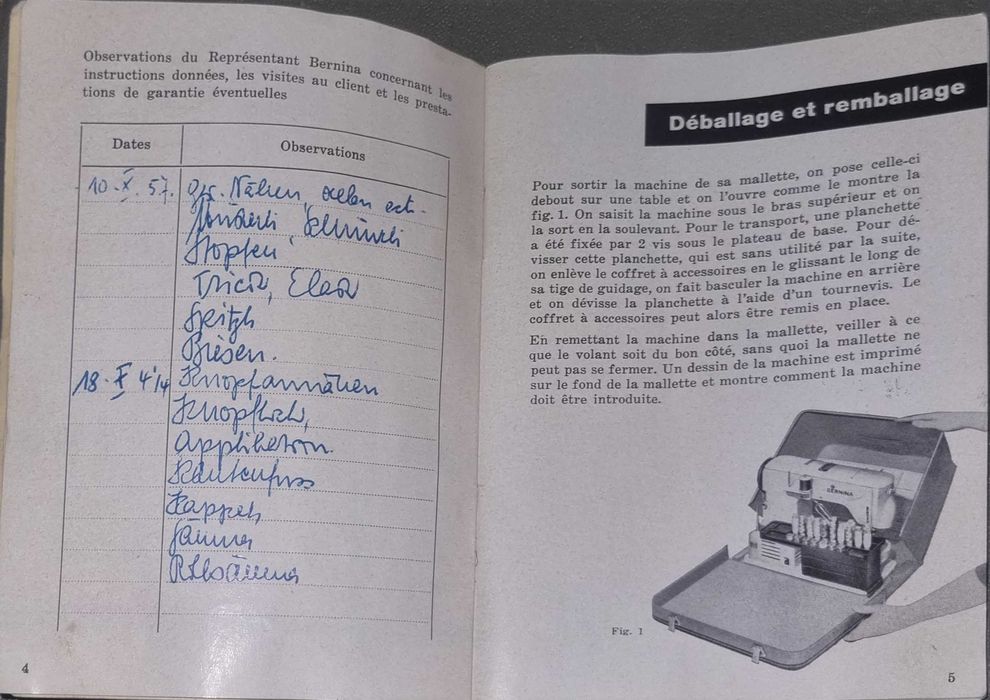 Observations du Représentant Bernina concernant les
instructions données, les visites au client et les presta-
tions de garantie éventuelles
Dates
Observations
10. X. 57. Nähen,
Stopfen
Tricot,
Spitzh
Biesen.
18. X 4 1/4 Knopfannähen
Knopfloch,
Applikation.
Kantenfuss
Kappen
Säumer
Rollsäumer
4
Déballage et remballage
Pour sortir la machine de sa mallette, on pose celle-ci
debout sur une table et on l'ouvre comme le montre la
fig. 1. On saisit la machine sous le bras supérieur et on
la sort en la soulevant. Pour le transport, une planchette
a été fixée par 2 vis sous le plateau de base. Pour dé-
visser cette planchette, qui est sans utilité par la suite,
on enlève le coffret à accessoires en le glissant le long de
sa tige de guidage, on fait basculer la machine en arrière
et on dévisse la planchette à l'aide d'un tournevis. Le
coffret à accessoires peut alors être remis en place.
En remettant la machine dans la mallette, veiller à ce
que le volant soit du bon côté, sans quoi la mallette ne
peut pas se fermer. Un dessin de la machine est imprimé
sur le fond de la mallette et montre comment la machine
doit être introduite.
BERNINA
Fig. 1
5